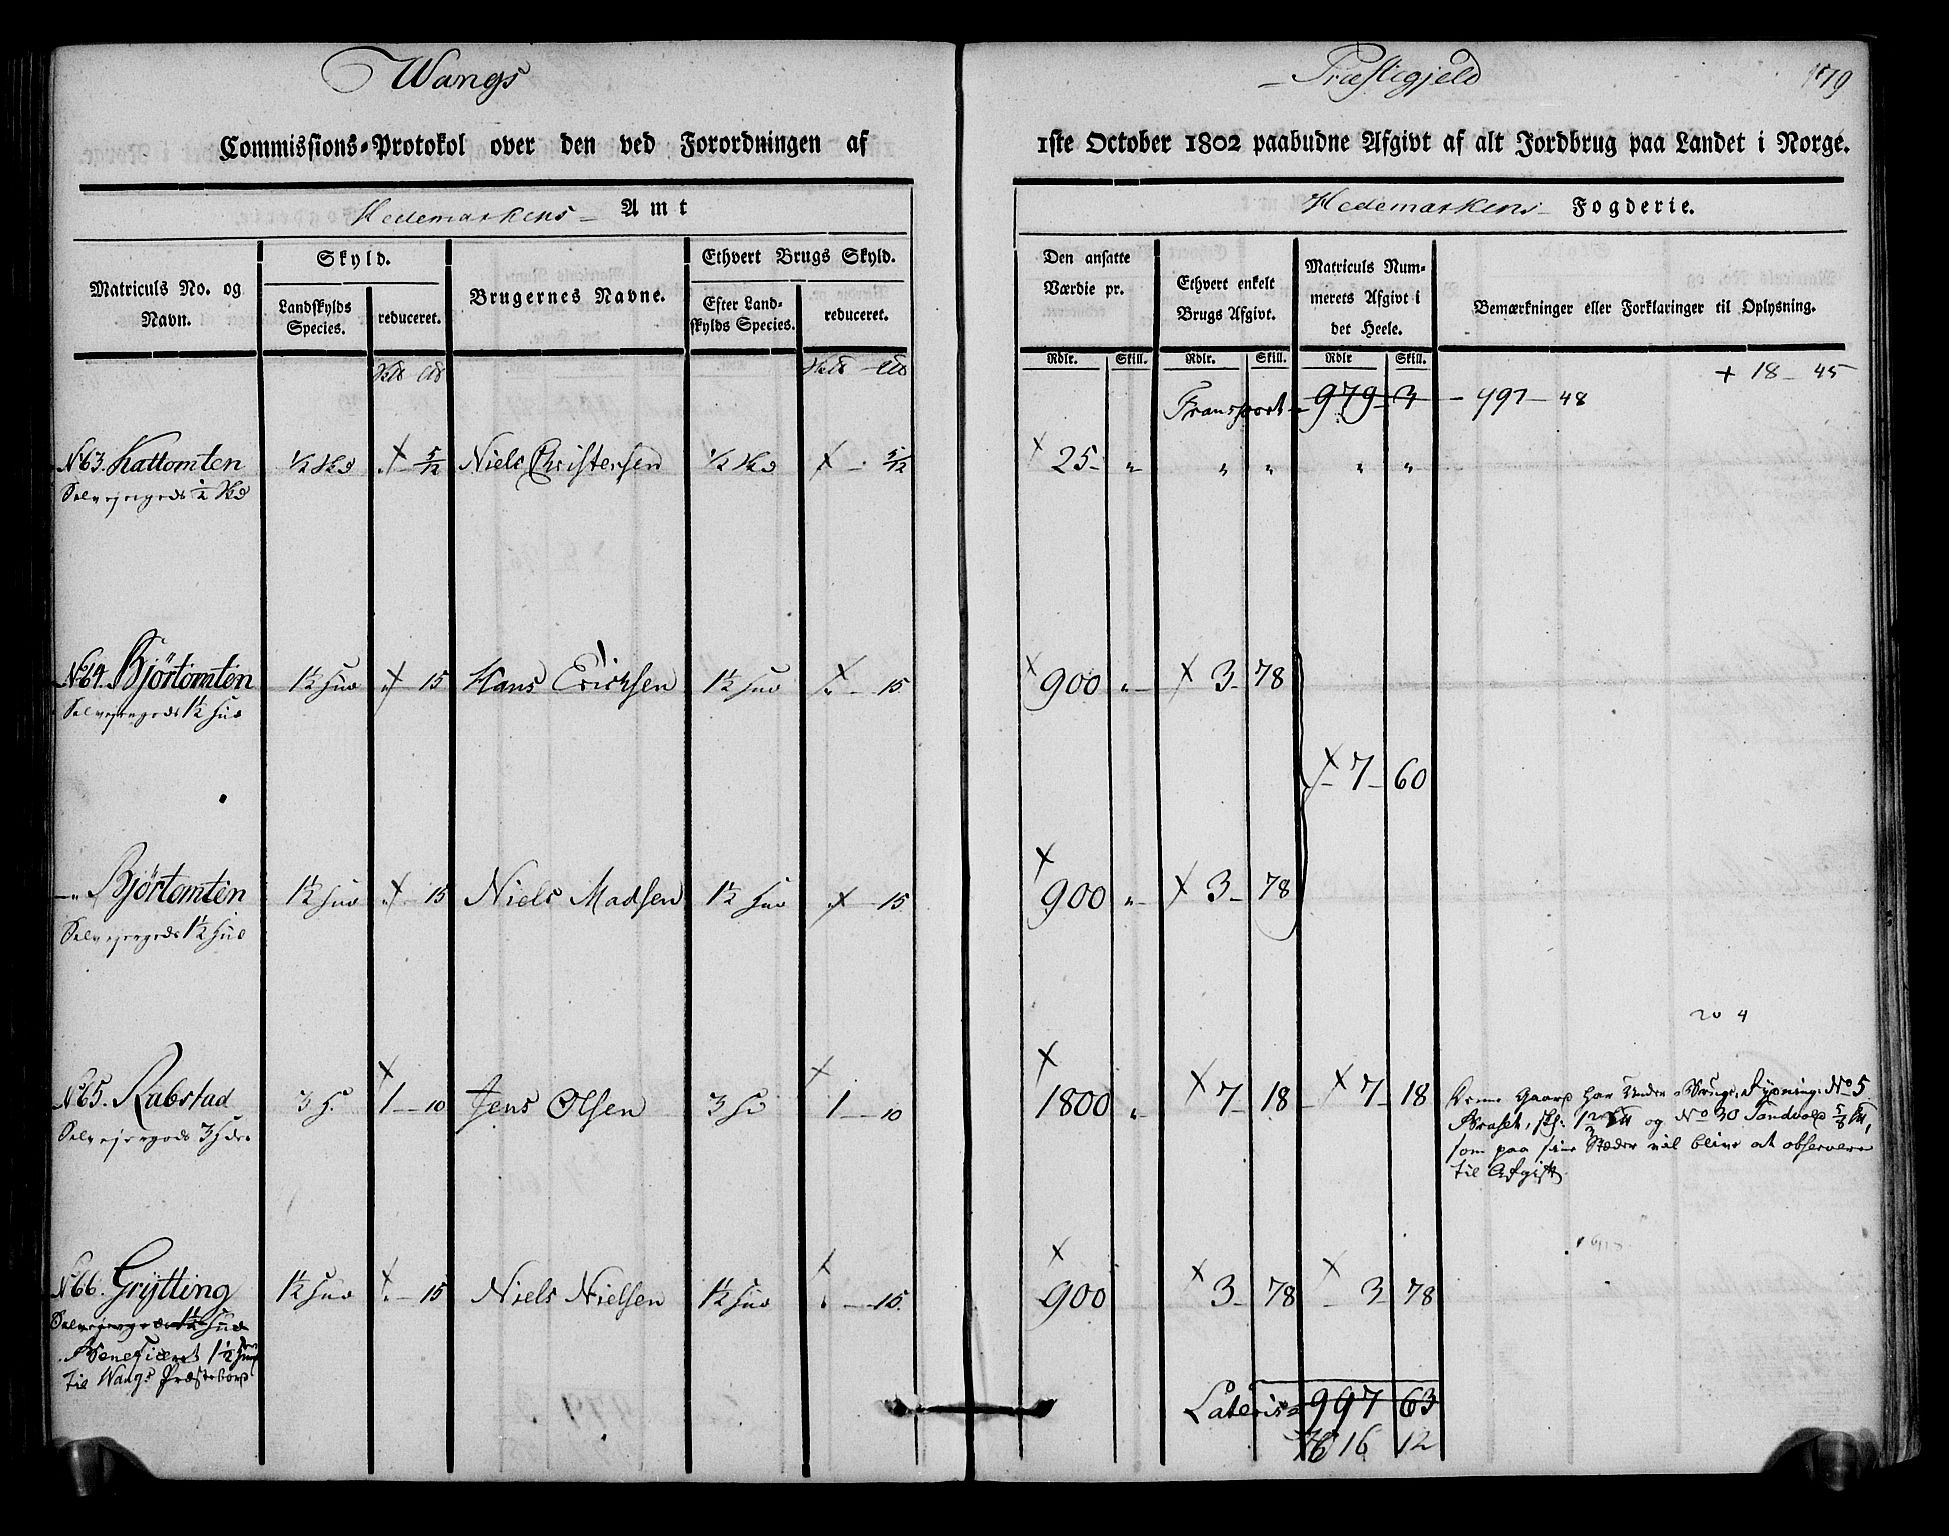 Wangs
Præstegjeld
179
Commissions-Protokol over den ved Forordningen af
1ste October 1802 paabudne Afgivt af alt Jordbrug paa Landet i Norge.
Hedemarkens Amt
Hedemarkens Fogderie.
Matriculs No. og Navn.
Skyld.
Landskylds Species.
reduceret.
Brugernes Navne.
Ethvert Brugs Skyld.
Efter Landskylds Species.
reduceret.
Den ansatte Værdie pr.
Ethvert enkelt Brugs Afgivt.
Matriculs Nummerets Afgivt i det Heele.
Bemærkninger eller Forklaringer til Oplysning.
Rdlr. Skill. Rdlr. Skill. Rdlr Skill.
+ 18 - 45
Transport - 979 - 3 - 497 - 48
No 63. Kattomten ½ Hd 5/12 Niels Christersen ½ Hd 5/12 25 - „ „ „ „ „
Selvejergods ½ Hd
No 64. Bjørtomten 1½ Hud „ - 15 Hans Erichsen 1½ Hud „ - 15 900 „ 3 - 78
Selvejergods 1½ Hud
7 - 60
-„- Bjørtomten 1½ Hud „ - 15 Niels Madsen 1½ Hud „ - 15 900 „ 3 - 78
Selvejergods 1½ Hud
No 65. Rabstad 3 H. 1 - 10 Jens Olsen 3 Hd 1 - 10 1800 „ 7 - 18 - 7 - 18
Selvejergods 3 Hder
Denne Gaard har Under Brug: Rydning: No 5
og No 30
som paa sine Stæder vil blive at observere
til Afgift
No 66. Grÿtting 1½ Hud „ - 15 Niels Nielsen 1½ Hud „ - 15 900 3 - 78 - 3 - 78
Selvejergods 1½ Hud
Beneficeret 1½ Hud
til Wangs Præstebord
Lateris 997 63
16 12